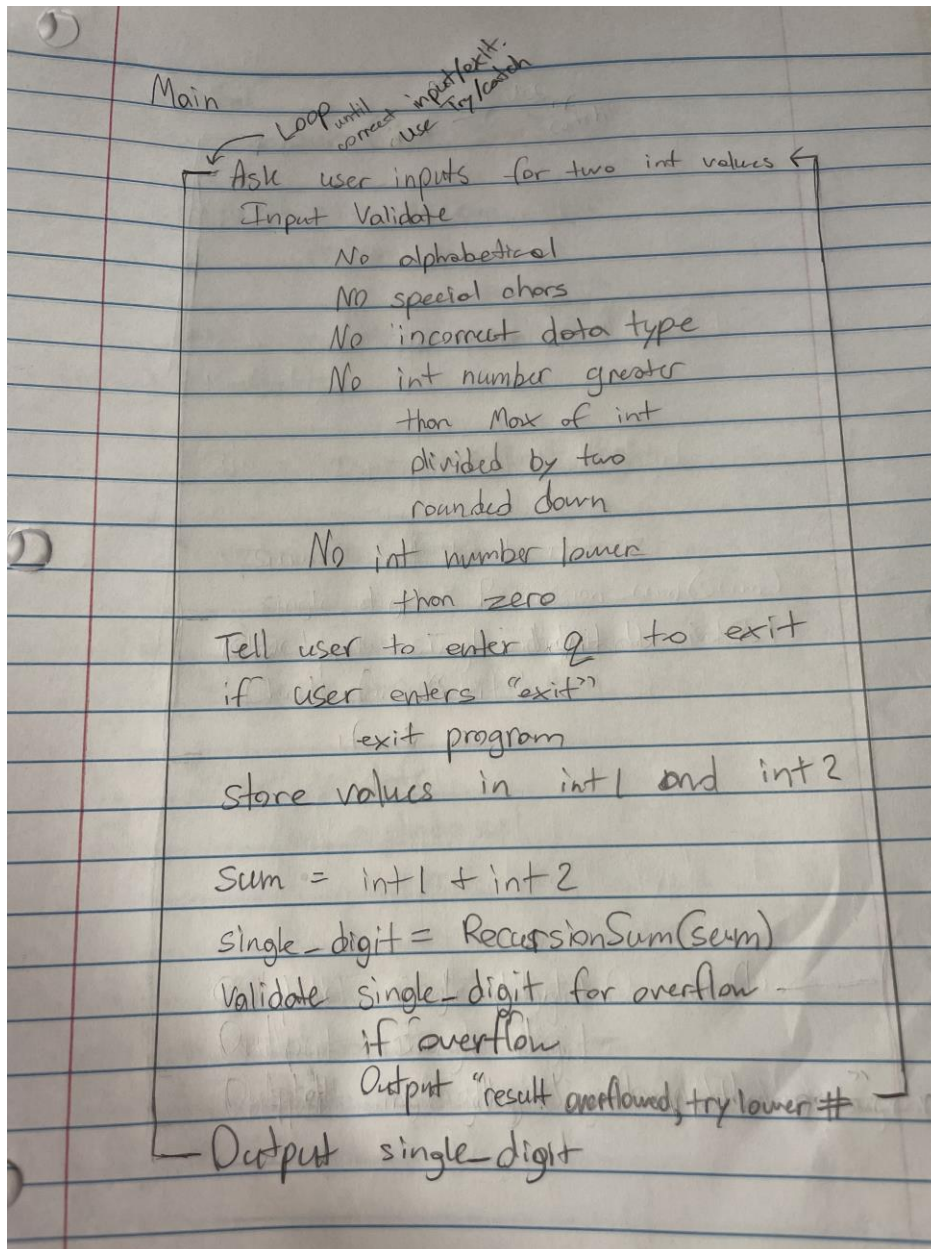 Main
Loop until
correct input/exit.
use Try/catch
Ask user inputs for two int values
Input Validate
No alphabetical
No special chars
No incorrect data type
No int number greater
than Max of int
divided by two
rounded down
No int number lower
than zero
Tell user to enter q to exit
if user enters "exit"
exit program
Store values in int1 and int2
Sum = int1 + int2
single_digit = RecursionSum(sum)
Validate single_digit for overflow
if overflow
Output "result overflowed, try lower #"
Output single_digit